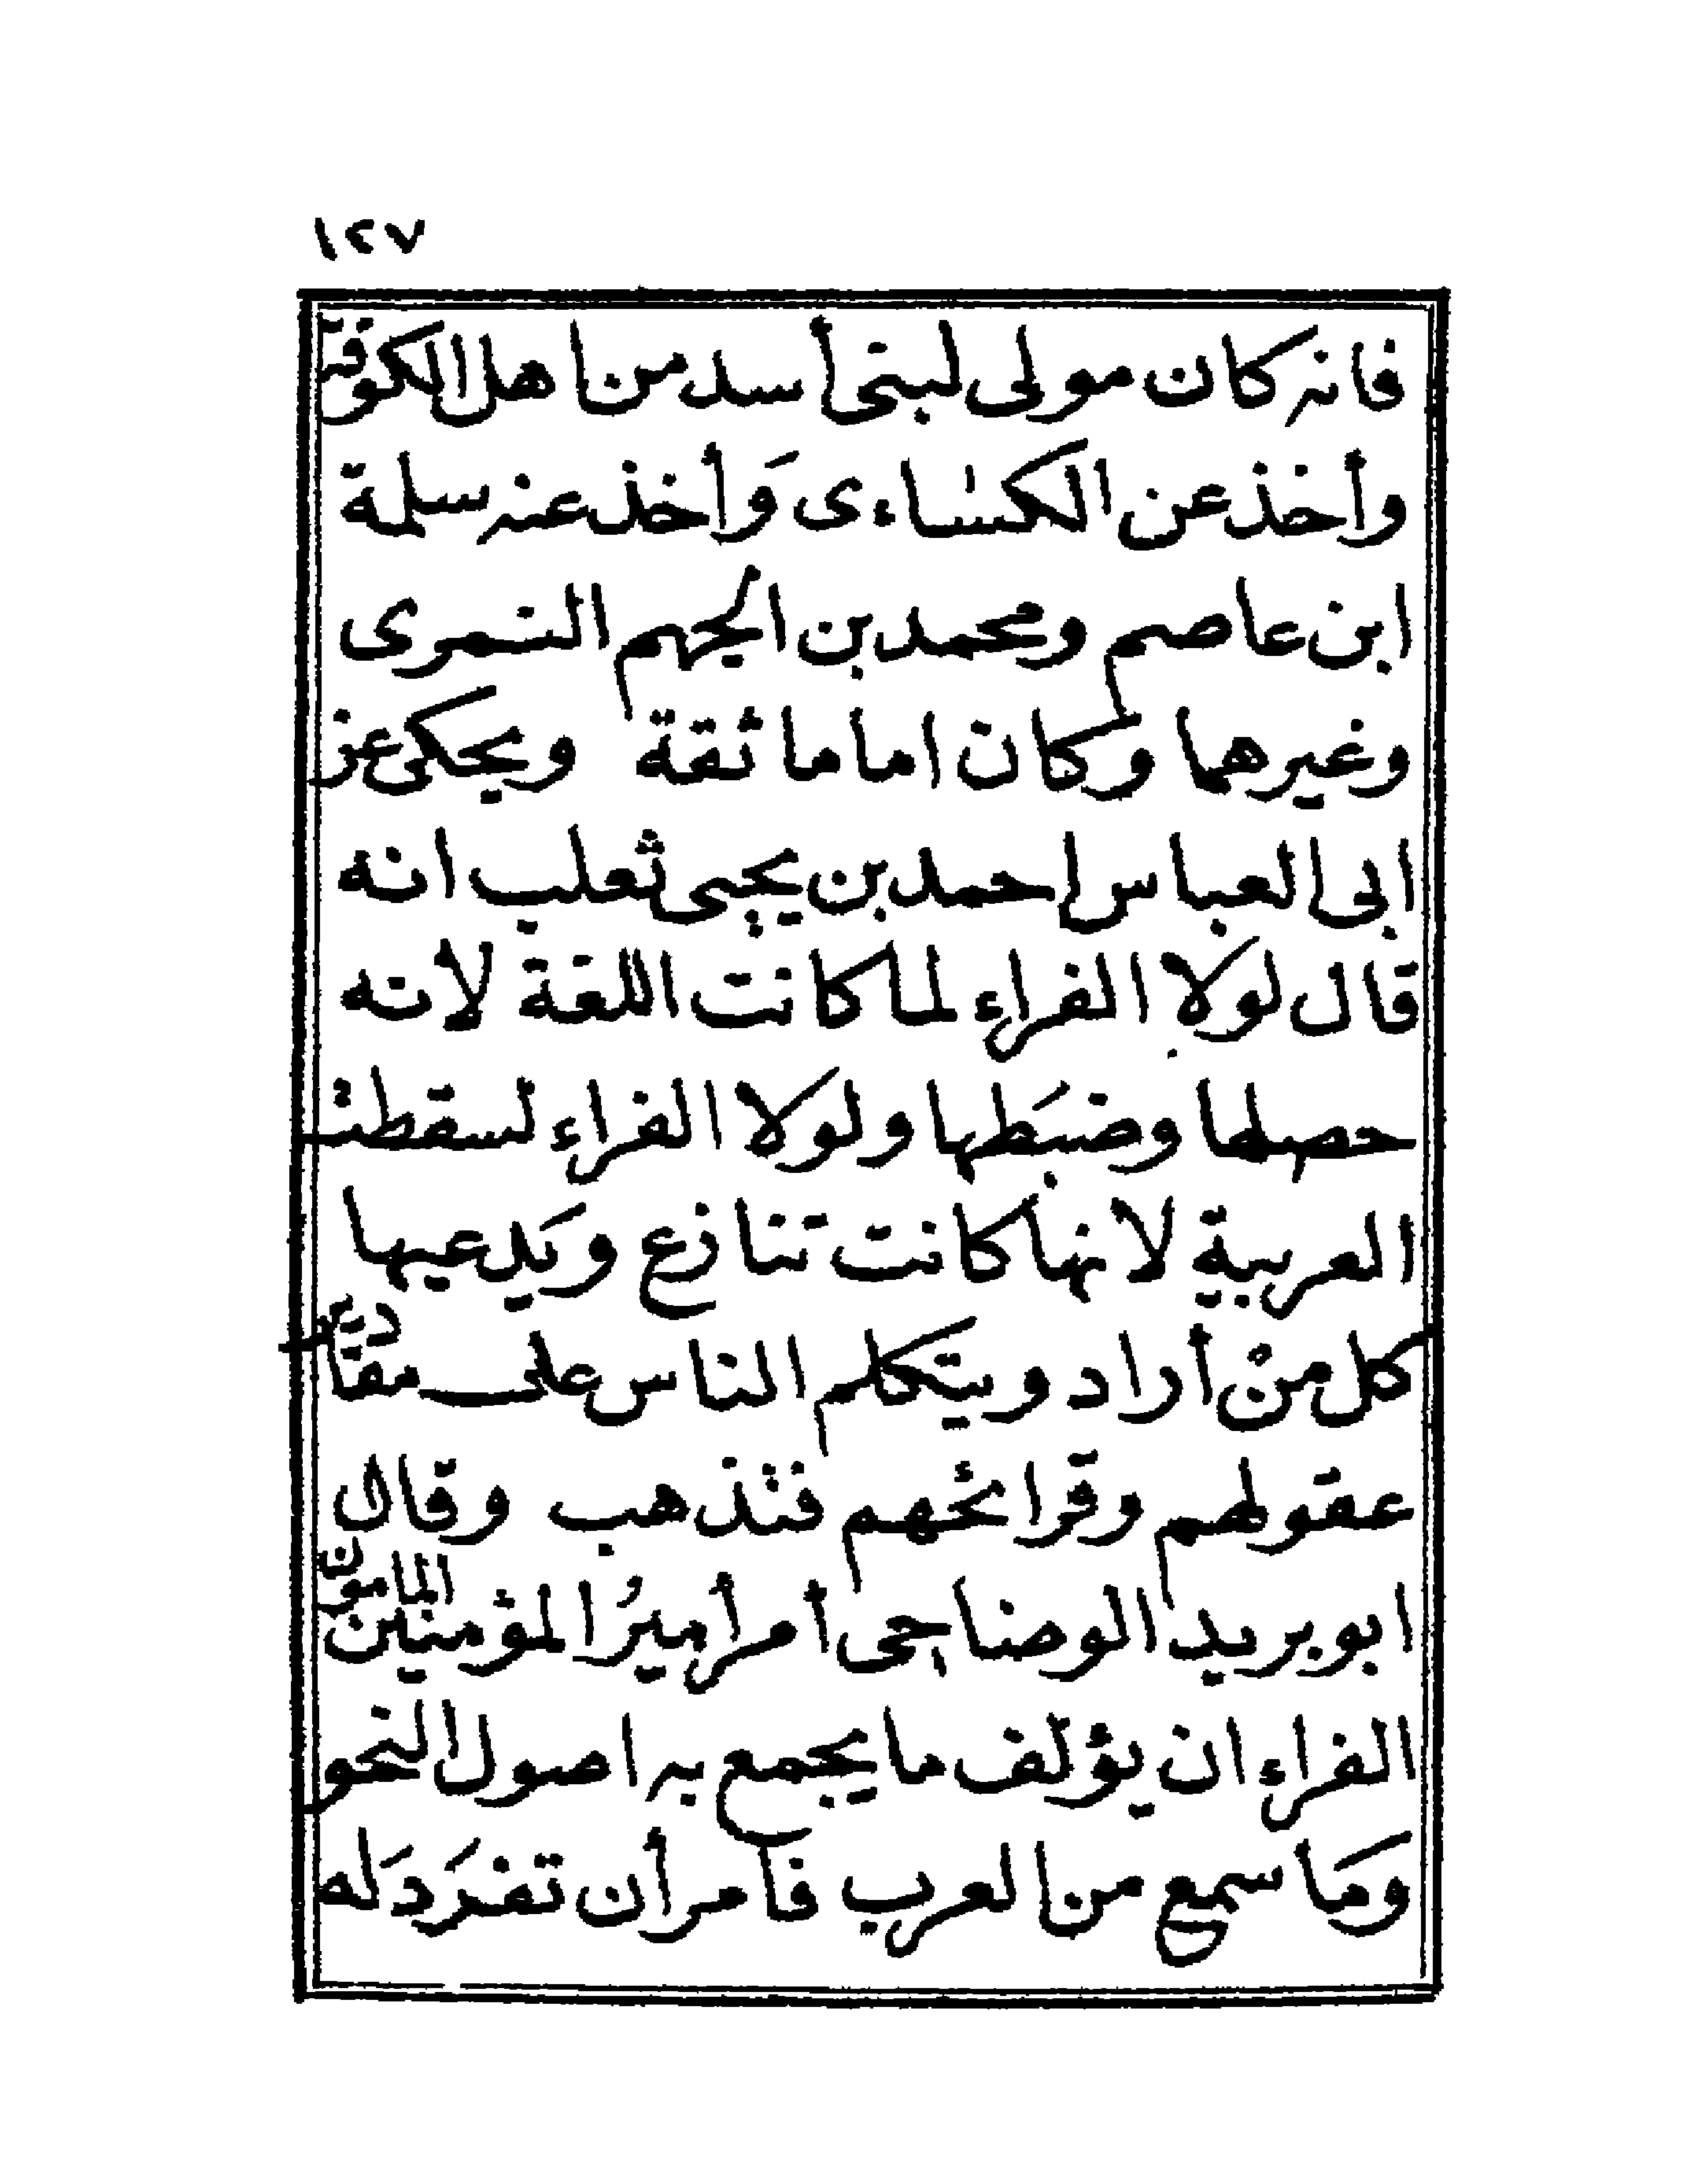 ١٢٧
فانه كان مولى لبنى أسد من اهل الكوفة
وأخذ عن الكساءى وَأخذ عنه سلمة
ابن عاصم ومحمد بن الجهم النمرى
وغيرهما وكان اماما ثقة ويحكى عن
ابى العباس احمد بن يحيى ثعلب انه
قال لولا الفراء لما كانت اللغة لأنه
حصلها وضبَطها ولولا الفراء لسقطت
العربية لانها كانت تنازع ويَدعيها
كل من أراد ويتكلم الناس على مقادير
عقولهم وقرائحهم فتذهب وقال
ابو بريد الوضاحى أمر أميرُ المؤمنين المامون
الفراء ان يؤلف ما يجمع به اصول النحو
وَما سمع من العرب فأمر أن تفرَدَ له